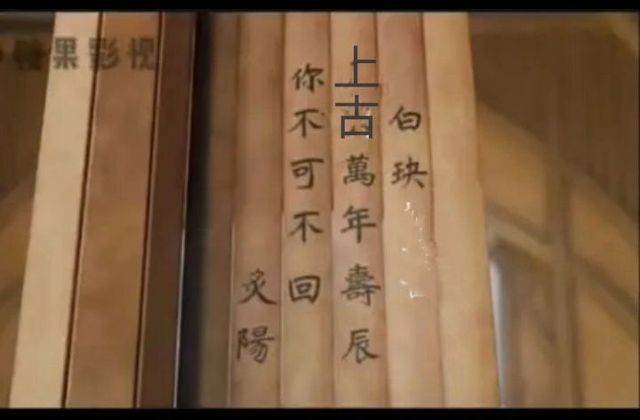 白玦
上古萬年壽辰
你不可不回
炙陽
糖果影视